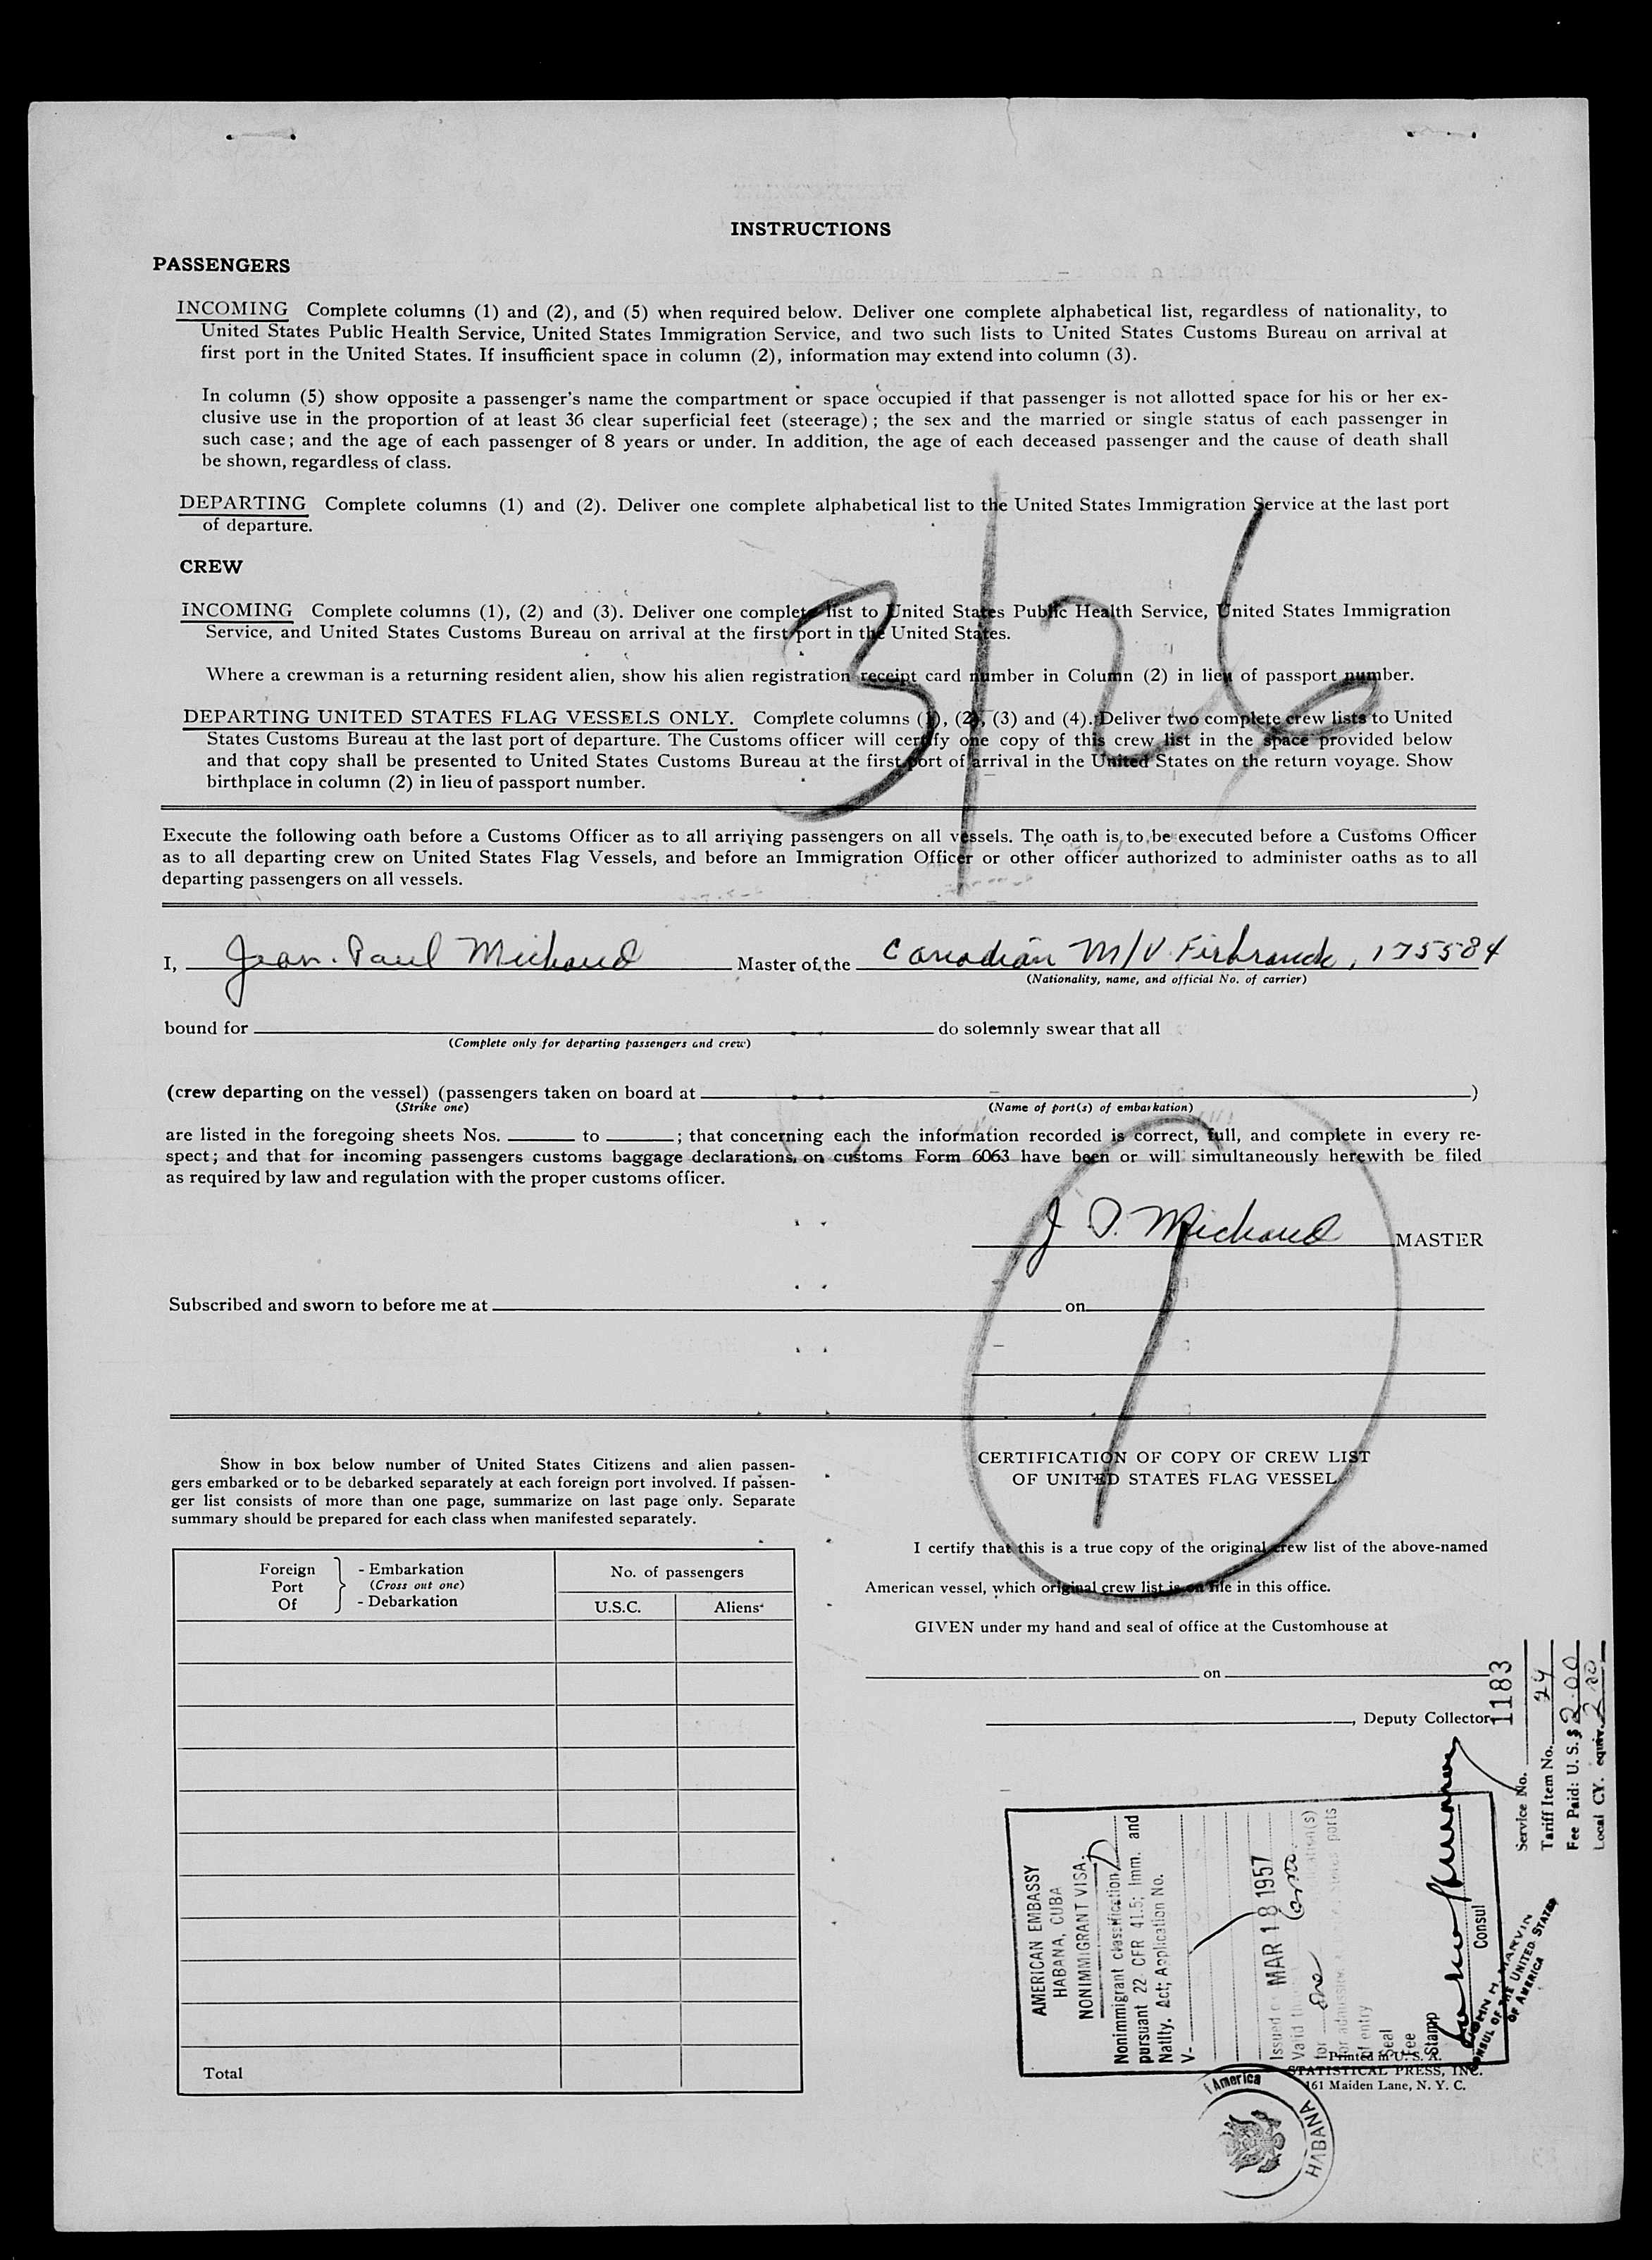 INSTRUCTIONS
PASSENGERS
INCOMING Complete columns (1) and (2), and (5) when required below. Deliver one complete alphabetical list, regardless of nationality, to
United States Public Health Service, United States Immigration Service, and two such lists to United States Customs Bureau on arrival at
first port in the United States. If insufficient space in column (2), information may extend into column (3).
In column (5) show opposite a passenger's name the compartment or space occupied if that passenger is not allotted space for his or her ex-
clusive use in the proportion of at least 36 clear superficial feet (steerage); the sex and the married or single status of each passenger in
such case; and the age of each passenger of 8 years or under. In addition, the age of each deceased passenger and the cause of death shall
be shown, regardless of class.
DEPARTING Complete columns (1) and (2). Deliver one complete alphabetical list to the United States Immigration Service at the last port
of departure.
CREW
INCOMING Complete columns (1), (2) and (3). Deliver one complete list to United States Public Health Service, United States Immigration
Service, and United States Customs Bureau on arrival at the first port in the United States.
3/26
Where a crewman is a returning resident alien, show his alien registration receipt card number in Column (2) in lieu of passport number.
DEPARTING UNITED STATES FLAG VESSELS ONLY. Complete columns (1), (2), (3) and (4). Deliver two complete crew lists to United
States Customs Bureau at the last port of departure. The Customs officer will certify one copy of this crew list in the space provided below
and that copy shall be presented to United States Customs Bureau at the first port of arrival in the United States on the return voyage. Show
birthplace in column (2) in lieu of passport number.
Execute the following oath before a Customs Officer as to all arriving passengers on all vessels. The oath is to be executed before a Customs Officer
as to all departing crew on United States Flag Vessels, and before an Immigration Officer or other officer authorized to administer oaths as to all
departing passengers on all vessels.
I, Jean-Paul Michaud Master of the Canadian M/V. Firbranch, 175584
(Nationality, name, and official No. of carrier)
bound for do solemnly swear that all
(Complete only for departing passengers and crew)
(crew departing on the vessel) (passengers taken on board at )
(Strike one) (Name of port(s) of embarkation)
are listed in the foregoing sheets Nos. to ; that concerning each the information recorded is correct, full, and complete in every re-
spect; and that for incoming passengers customs baggage declarations on customs Form 6063 have been or will simultaneously herewith be filed
as required by law and regulation with the proper customs officer.
J. P. Michaud MASTER
Subscribed and sworn to before me at on
1
Show in box below number of United States Citizens and alien passen-
gers embarked or to be debarked separately at each foreign port involved. If passen-
ger list consists of more than one page, summarize on last page only. Separate
summary should be prepared for each class when manifested separately.
Foreign Port Of
- Embarkation
(Cross out one)
- Debarkation
No. of passengers
U.S.C. Aliens
Total
CERTIFICATION OF COPY OF CREW LIST
OF UNITED STATES FLAG VESSEL
I certify that this is a true copy of the original crew list of the above-named
American vessel, which original crew list is on file in this office.
GIVEN under my hand and seal of office at the Customhouse at
on
, Deputy Collector
1183
Service No.
Tariff Item No. 24
Fee Paid: U. S. $ 2.00
Local CY. equiv. 2.00
AMERICAN EMBASSY
HABANA, CUBA
NONIMMIGRANT VISA
Nonimmigrant classification D
pursuant 22 CFR 41.5; Imm. and
Natlty. Act; Application No.
V-
Issued on MAR 18 1957
Valid
for one
for admission ports
of entry
Seal
Fee
Stamp
Consul
JOHN H. MARVIN
CONSUL OF THE UNITED STATES
OF AMERICA
Printed in U. S. A.
STATISTICAL PRESS, INC.
161 Maiden Lane, N. Y. C.
America
HABANA